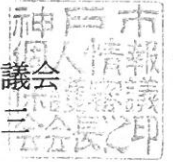 神戸市
個人情報
議
会会長之印
議会
三